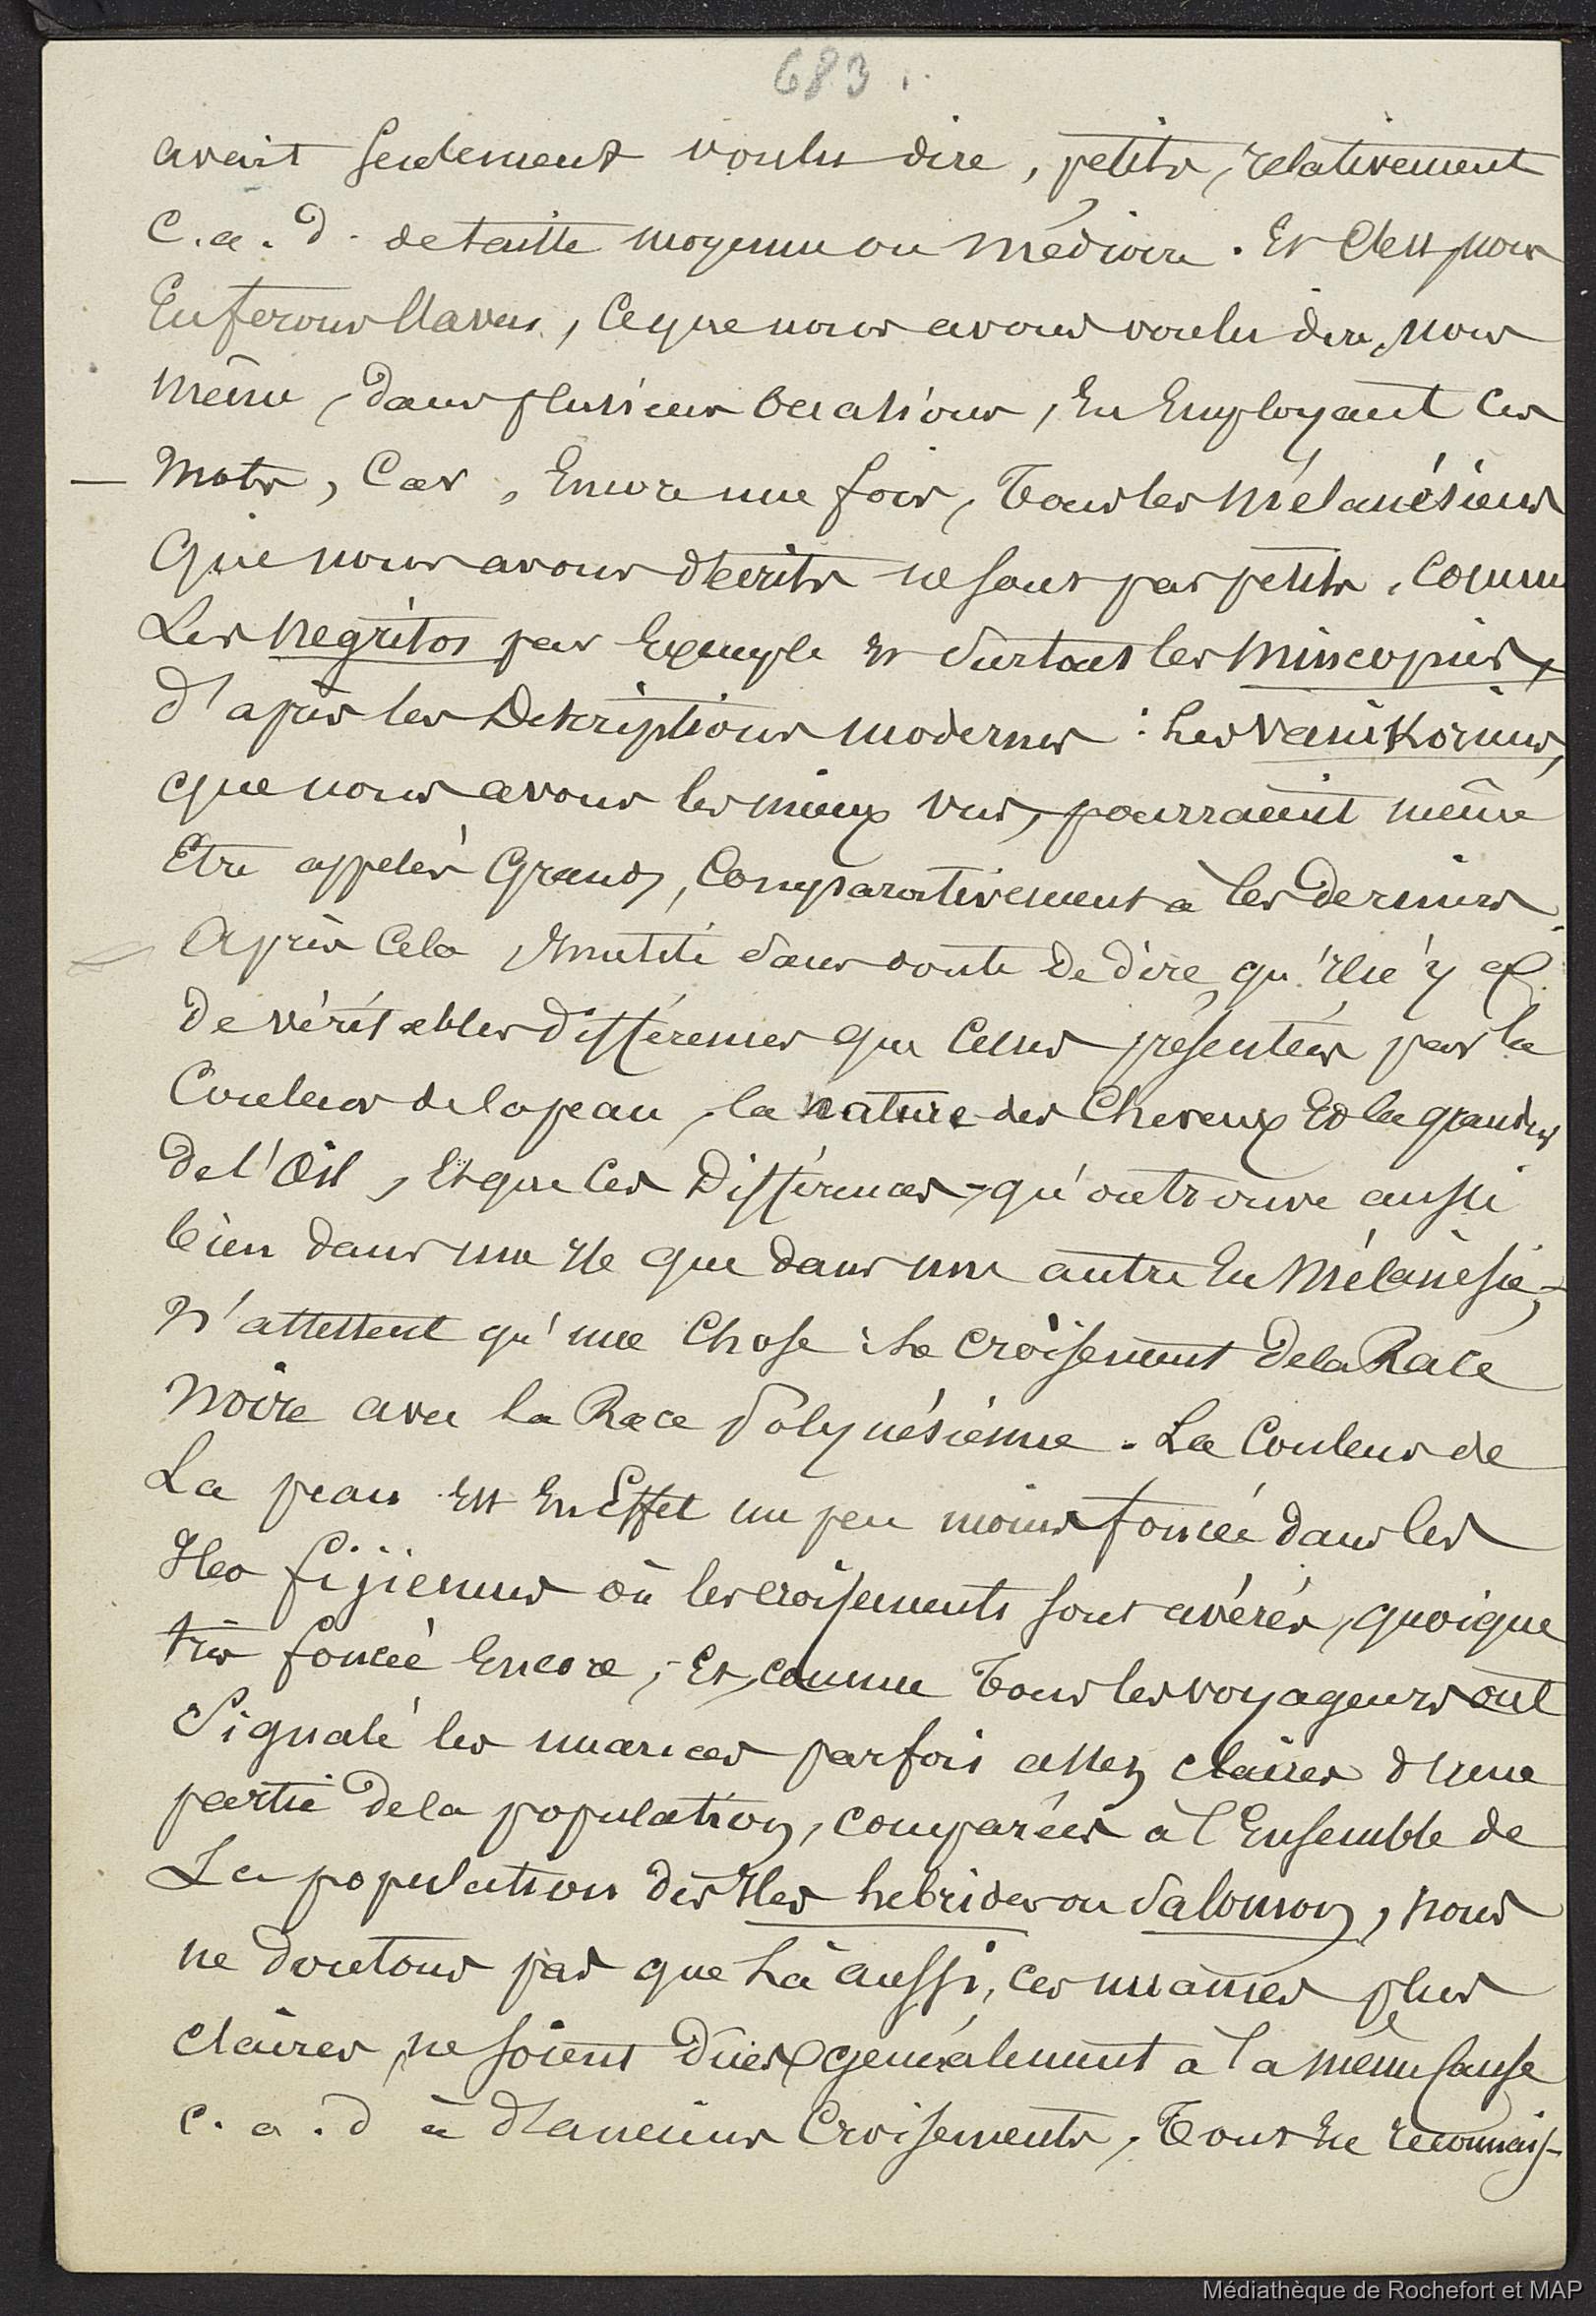 683.
avait seulement voulu dire, petits, relativement
c. a. d. de taille moyenne ou médiocre. Et c'est, nous
en ferons l'aveu, ce que nous avons voulu dire, nous
même, dans plusieurs occasions, en employant ces
— mots, car, encore une fois, tous les Mélanésiens
que nous avons décrits ne sont pas petits, comme
les Négritos par exemple et surtout les Mincopies,
d'après les descriptions modernes : les Vanikoriens,
que nous avons les mieux vus, pourraient même
être appelés grands, comparativement à ces derniers.
Après cela inutile sans doute de dire qu'il n'y a
de véritables différences que celles présentées par la
couleur de la peau, la nature des cheveux et la grandeur
de l'œil, et que ces différences, qu'on trouve aussi
bien dans une île que dans une autre en Mélanésie,
n'attestent qu'une chose : le croisement de la Race
noire avec la Race Polynésienne. La couleur de
la peau est en effet un peu moins foncée dans les
Iles fijiennes où les croisements sont avérés, quoique
très foncée encore, et, comme tous les voyageurs ont
signalé les nuances parfois assez claires d'une
partie de la population, comparées à l'ensemble de
la population des Iles hebrides ou Salomon, nous
ne doutons pas que là aussi, ces nuances plus
claires, ne soient dues généralement à la même cause
c. a. d à d'anciens croisements, tout en reconnais-
Médiathèque de Rochefort et MAP